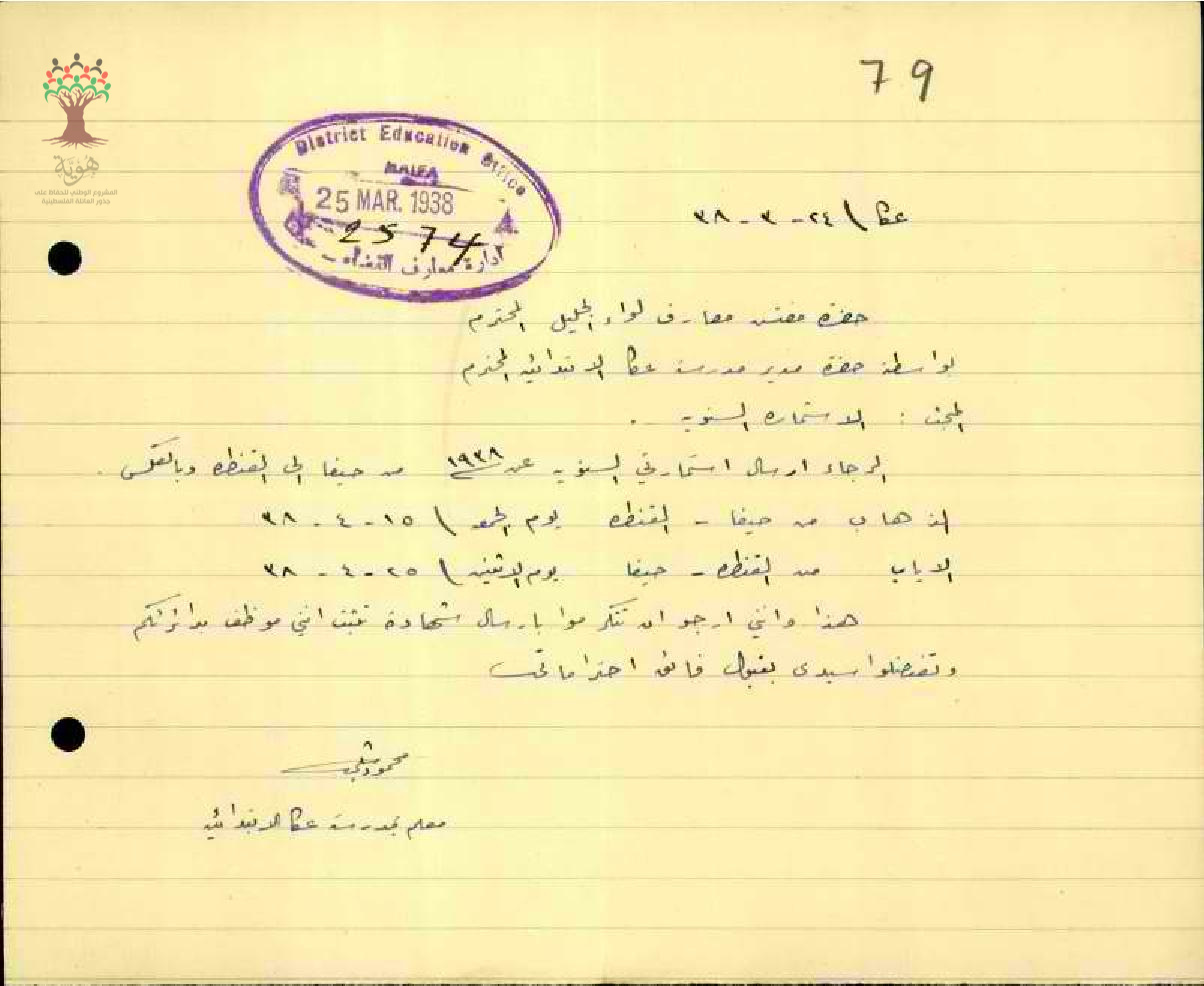 79
هوية
المشروع الوطني للحفاظ على
جذور العائلة الفلسطينية
District Education Office
HAIFA
25 MAR. 1938
2574
ادارة معارف القضاء
عكا \ ٢٤ - ٣ - ٣٨
حضرة مفتش معارف لواء الجليل المحترم
بواسطة حضرة مدير مدرسة عكا الابتدائيه المحترم
المبحث : الاستماره السنويه .
الرجاء ارسال استمارتي السنويه عن ١٩٣٨ من حيفا الى القنطره وبالعكس .
الذهاب من حيفا - القنطره يوم الجمعه \ ١٥ - ٤ - ٣٨
الاياب من القنطره - حيفا يوم الاثنين \ ٢٥ - ٤ - ٣٨
هذا وانني ارجو ان تتكرموا بارسال شهادة تثبت انني موظف بدائرتكم
وتفضلوا سيدى بقبول فائق احتراماتي
محمود
معلم بمدرسة عكا الابتدائيه